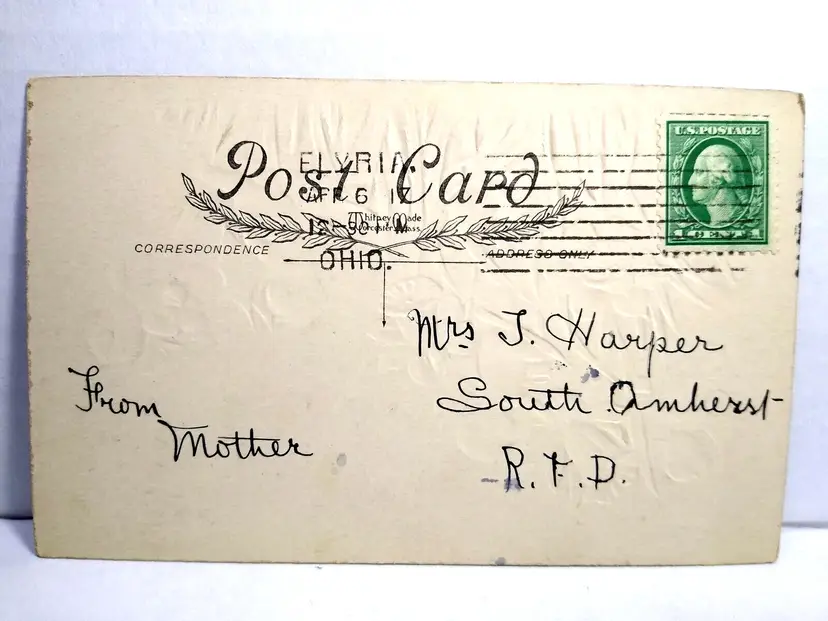 Post Card
ELYRIA
APR 6 17
OHIO.
Whitney Made
Worcester, Mass
CORRESPONDENCE
ADDRESS ONLY
U.S. POSTAGE
1 CENT 1
Mrs T. Harper
South Amherst
R.F.D.
From
Mother